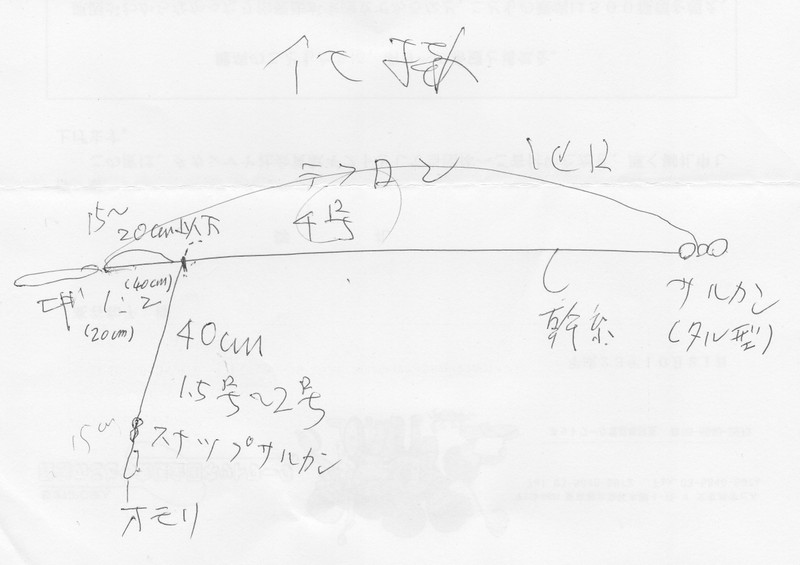 1ヒロ
テフロン
4号
15〜
20cm以下
(40cm)
エギ 1:2
(20cm)
幹糸
サルカン
(タル型)
40cm
1.5号〜2号
15cm
スナップサルカン
オモリ